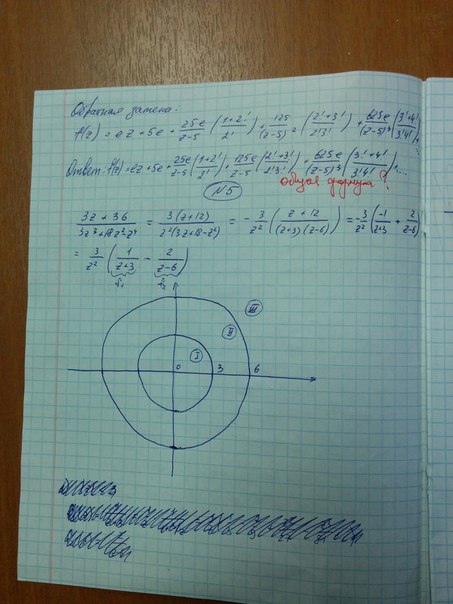 Обратная замена:
f(z) = ez + 5e + 25e/(z-5) ((1+2!)/2!) + 125/(z-5)² ((2!+3!)/(2!3!)) + 625e/(z-5)³ ((3!+4!)/(3!4!)) + ...
Ответ: f(z) = ez + 5e + 25e/(z-5) ((1+2!)/2!) + 125e/(z-5) ((2!+3!)/(2!3!)) + 625e/(z-5)³ ((3!+4!)/(3!4!)) + ...
общая формула?
N5
(3z + 36)/(3z³+18z²-z⁴) = 3(z+12)/(z²(3z+18-z²)) = -3/z² ((z+12)/((z+3)(z-6))) = -3/z² (-1/(z+3) + 2/(z-6))
= 3/z² (1/(z+3) - 2/(z-6))
f₁ f₂
III
II
I
0 3 6